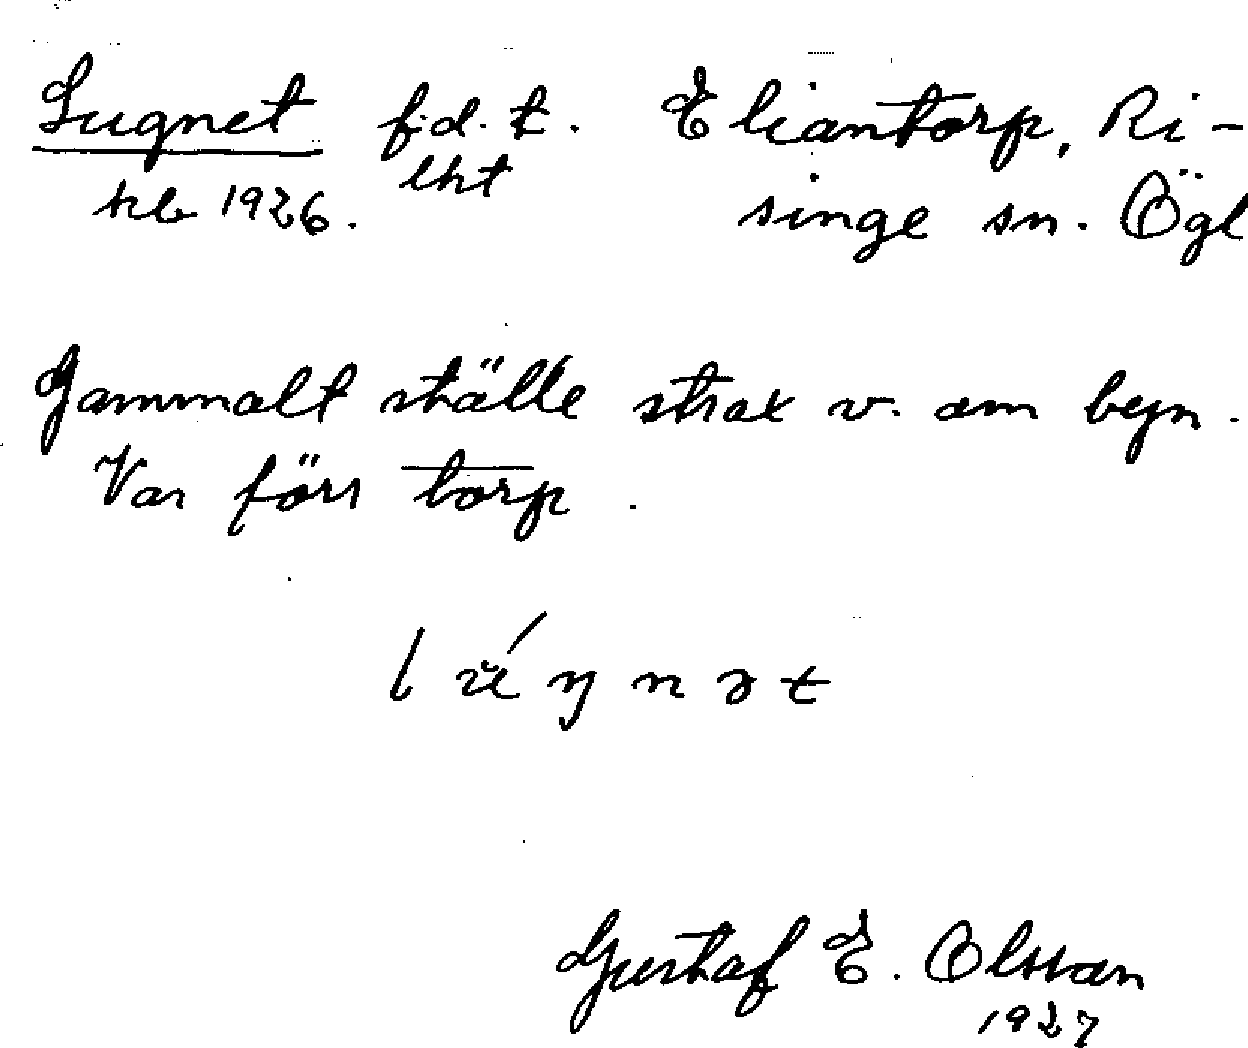 Lugnet f.d. t. Eliantorp, Ri-
hb 1926. lht singe sn. Ögl
Gammalt ställe strax v. om byn.
Var förr torp.
Gustaf E. Olsson
1927